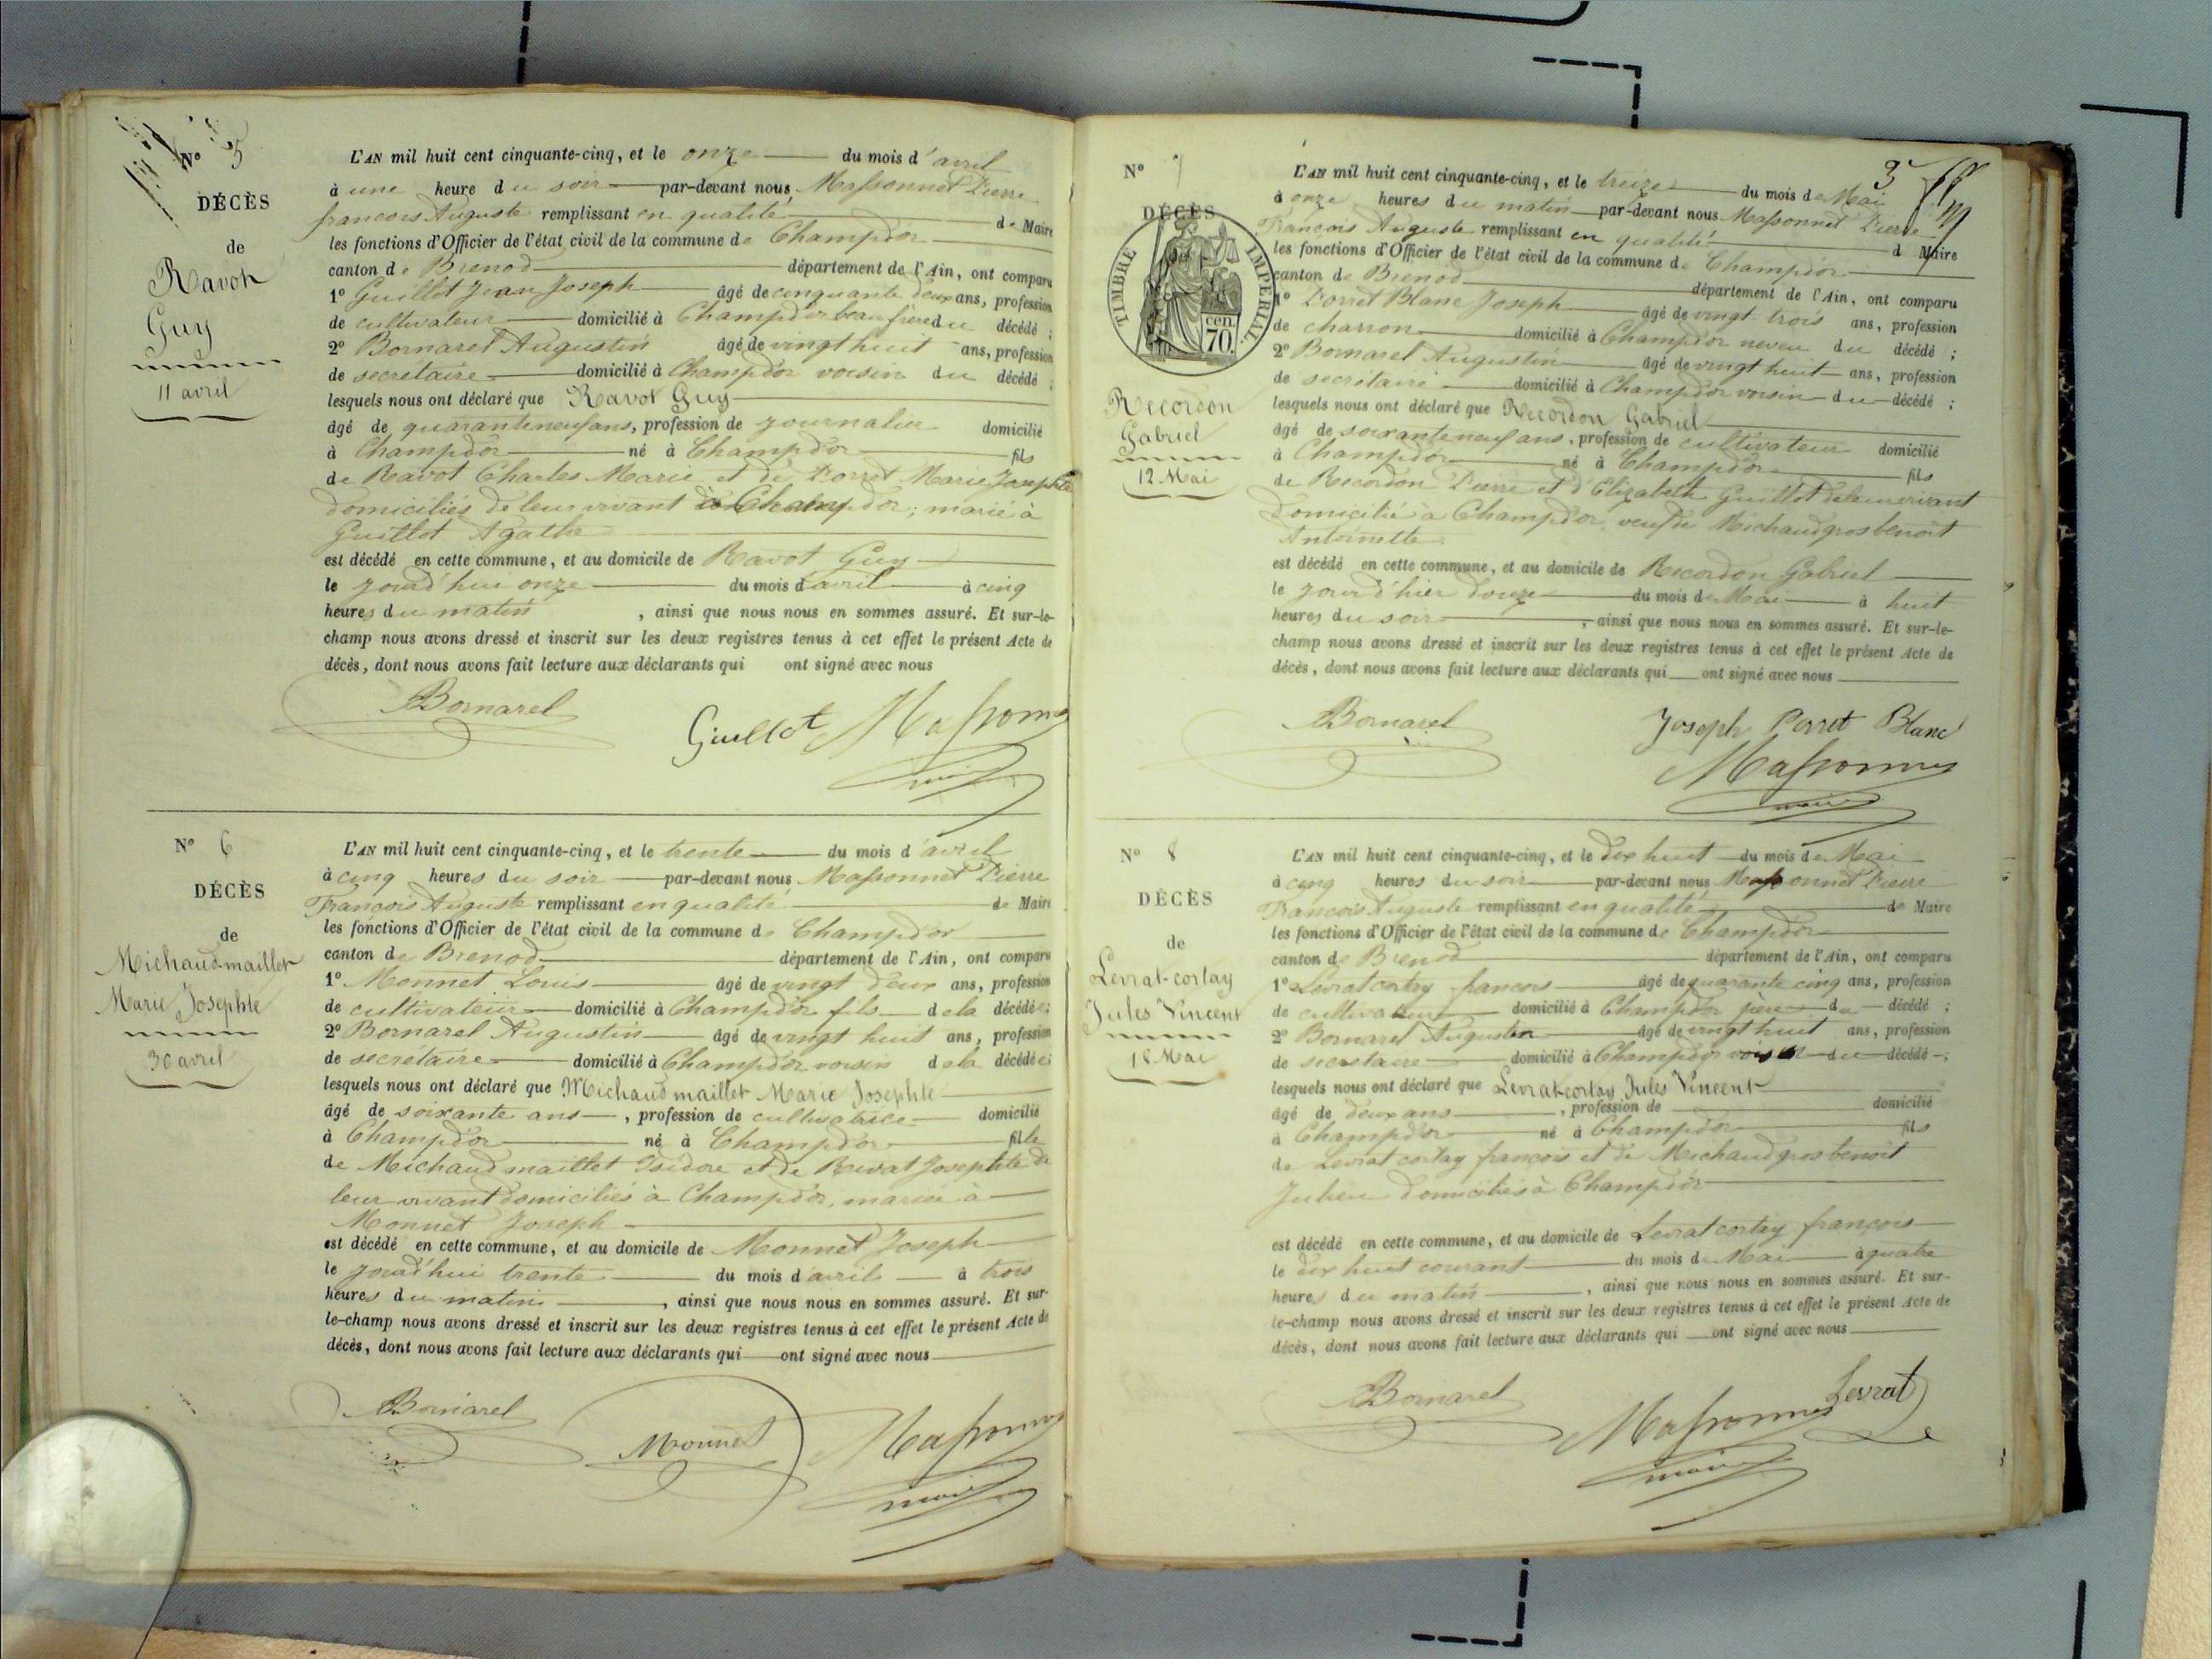 N° 5
DÉCÈS
de
Ravot
Guy
11 avril
L'AN mil huit cent cinquante-cinq, et le onze du mois d'avril
à une heure du soir par-devant nous Massonnet Pierre
françois Auguste remplissant en qualité de Maire
les fonctions d'Officier de l'état civil de la commune de Champdor
canton de Brenod département de l'Ain, ont comparu
1° Guillot Jean Joseph âgé de cinquante deux ans, profession
de cultivateur domicilié à Champdor beau frère du décédé ;
2° Bornarel Augustin âgé de vingt huit ans, profession
de secrétaire domicilié à Champdor voisin du décédé ;
lesquels nous ont déclaré que Ravot Guy
âgé de quarante neuf ans, profession de journalier domicilié
à Champdor né à Champdor fils
de Ravot Charles Marie et de Perret Marie Josephte
domiciliés de leur vivant à Champdor ; marié à
Guillot Agathe
est décédé en cette commune, et au domicile de Ravot Guy
le jourd'hui onze du mois d'avril à cinq
heures du matin , ainsi que nous nous en sommes assuré. Et sur-le-
champ nous avons dressé et inscrit sur les deux registres tenus à cet effet le présent Acte de
décès, dont nous avons fait lecture aux déclarants qui ont signé avec nous
Bornarel
Guillot Massonnet
maire
N° 6
DÉCÈS
de
Michaud-maillet
Marie Josephte
30 avril
L'AN mil huit cent cinquante-cinq, et le trente du mois d'avril
à cinq heures du soir par-devant nous Massonnet Pierre
François Auguste remplissant en qualité de Maire
les fonctions d'Officier de l'état civil de la commune de Champdor
canton de Brenod département de l'Ain, ont comparu
1° Monnet Louis âgé de vingt deux ans, profession
de cultivateur domicilié à Champdor fils de la décédée ;
2° Bornarel Augustin âgé de vingt huit ans, profession
de secrétaire domicilié à Champdor voisin de la décédée ;
lesquels nous ont déclaré que Michaud maillet Marie Josephte
âgé de soixante ans , profession de cultivatrice domicilié
à Champdor né à Champdor fille
de Michaud maillet Isidore et de Ravat Josephte de
leur vivant domiciliés à Champdor, mariée à
Monnet Joseph
est décédé en cette commune, et au domicile de Monnet Joseph
le jourd'hui trente du mois d'avril à trois
heures du matin , ainsi que nous nous en sommes assuré. Et sur-
le-champ nous avons dressé et inscrit sur les deux registres tenus à cet effet le présent Acte de
décès, dont nous avons fait lecture aux déclarants qui ont signé avec nous
Bornarel
Monnet Massonnet
maire
3
N° 7
DÉCÈS
TIMBRE IMPERIAL
70 cen.
Recordon
Gabriel
12 Mai
L'AN mil huit cent cinquante-cinq, et le treize du mois de Mai
à onze heures du matin par-devant nous Massonnet Pierre
François Auguste remplissant en qualité de Maire
les fonctions d'Officier de l'état civil de la commune de Champdor
canton de Brenod département de l'Ain, ont comparu
1° Perret Blanc Joseph âgé de vingt trois ans, profession
de charron domicilié à Champdor neveu du décédé ;
2° Bornarel Augustin âgé de vingt huit ans, profession
de secrétaire domicilié à Champdor voisin du décédé ;
lesquels nous ont déclaré que Recordon Gabriel
âgé de soixante neuf ans, profession de cultivateur domicilié
à Champdor né à Champdor fils
de Recordon Pierre et d'Elizabeth Guillot de leur vivant
Domicilié à Champdor, veuf de Michaud gros benoit
Antoinette
est décédé en cette commune, et au domicile de Recordon Gabriel
le jour d'hier douze du mois de Mai à huit
heures du soir , ainsi que nous nous en sommes assuré. Et sur-le-
champ nous avons dressé et inscrit sur les deux registres tenus à cet effet le présent Acte de
décès, dont nous avons fait lecture aux déclarants qui ont signé avec nous
Bornarel
Joseph Perret Blanc
Massonnet
maire
N° 8
DÉCÈS
de
Levrat-cortay
Jules Vincent
18 Mai
L'AN mil huit cent cinquante-cinq, et le dix huit du mois de Mai
à cinq heures du soir par-devant nous Massonnet Pierre
François Auguste remplissant en qualité de Maire
les fonctions d'Officier de l'état civil de la commune de Champdor
canton de Brenod département de l'Ain, ont comparu
1° Levrat cortay françois âgé de quarante cinq ans, profession
de cultivateur domicilié à Champdor père du décédé ;
2° Bornarel Augustin âgé de vingt huit ans, profession
de secrétaire domicilié à Champdor voisin du décédé ;
lesquels nous ont déclaré que Levrat-cortay Jules Vincent
âgé de deux ans , profession de domicilié
à Champdor né à Champdor fils
de Levrat cortay françois et de Michaud gros benoit
Julien domiciliés à Champdor
est décédé en cette commune, et au domicile de Levrat cortay françois
le dix huit courant du mois de Mai à quatre
heures du matin , ainsi que nous nous en sommes assuré. Et sur-
le-champ nous avons dressé et inscrit sur les deux registres tenus à cet effet le présent Acte de
décès, dont nous avons fait lecture aux déclarants qui ont signé avec nous
Bornarel
Massonnet Levrat
maire